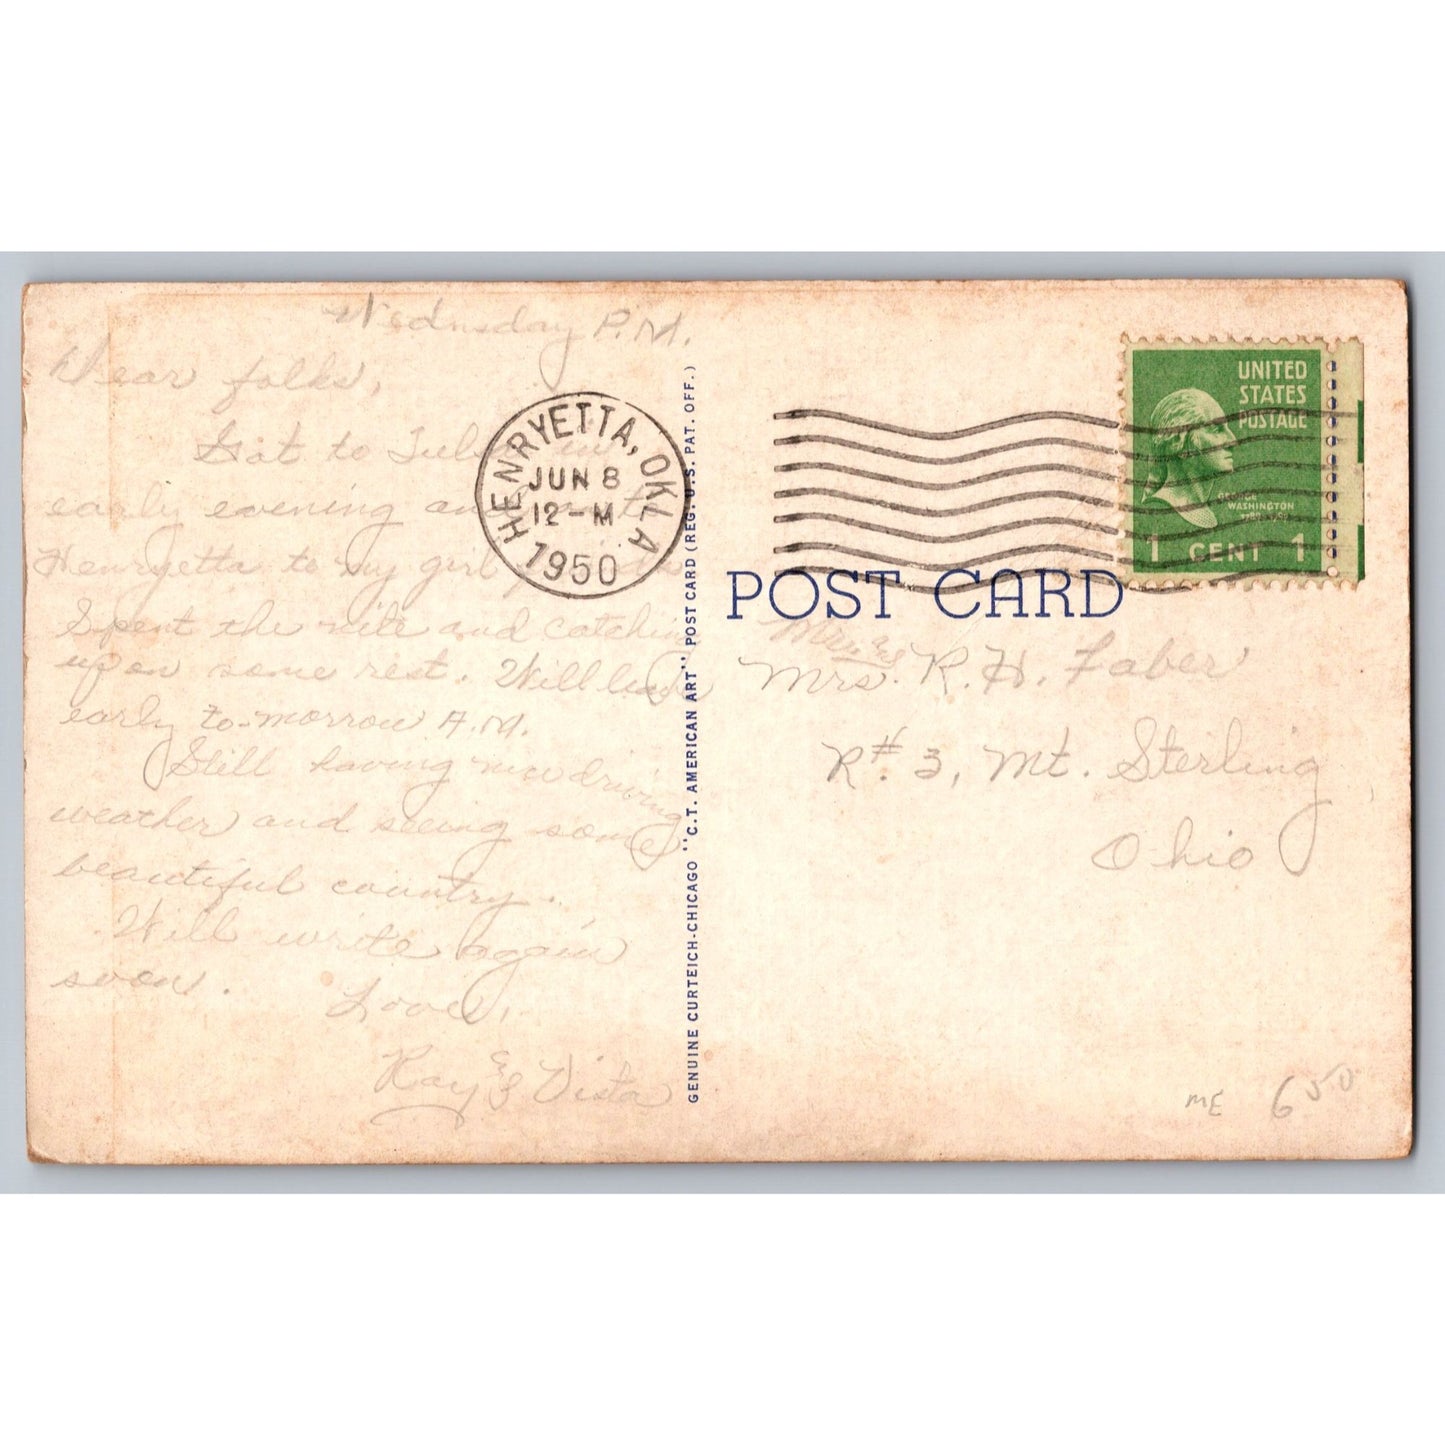 Wednesday P.M.
Dear folks,
Got to Tulsa in
early evening and
Henryetta to my girl
Spent the nite and catching
up on some rest. Will leave
early to-morrow A.M.
Still having nice driving
weather and seeing some
beautiful country.
Will write again
soon.
Love,
Ray & Vista
HENRYETTA, OKLA
JUN 8
12-M
1950
GENUINE CURTEICH-CHICAGO "C.T. AMERICAN ART" POST CARD (REG. U.S. PAT. OFF.)
UNITED
STATES
POSTAGE
GEORGE
WASHINGTON
1789-1797
1 CENT 1
POST CARD
Mr. &
Mrs. R. H. Faber
R# 3, Mt. Sterling
Ohio
ME 6 50